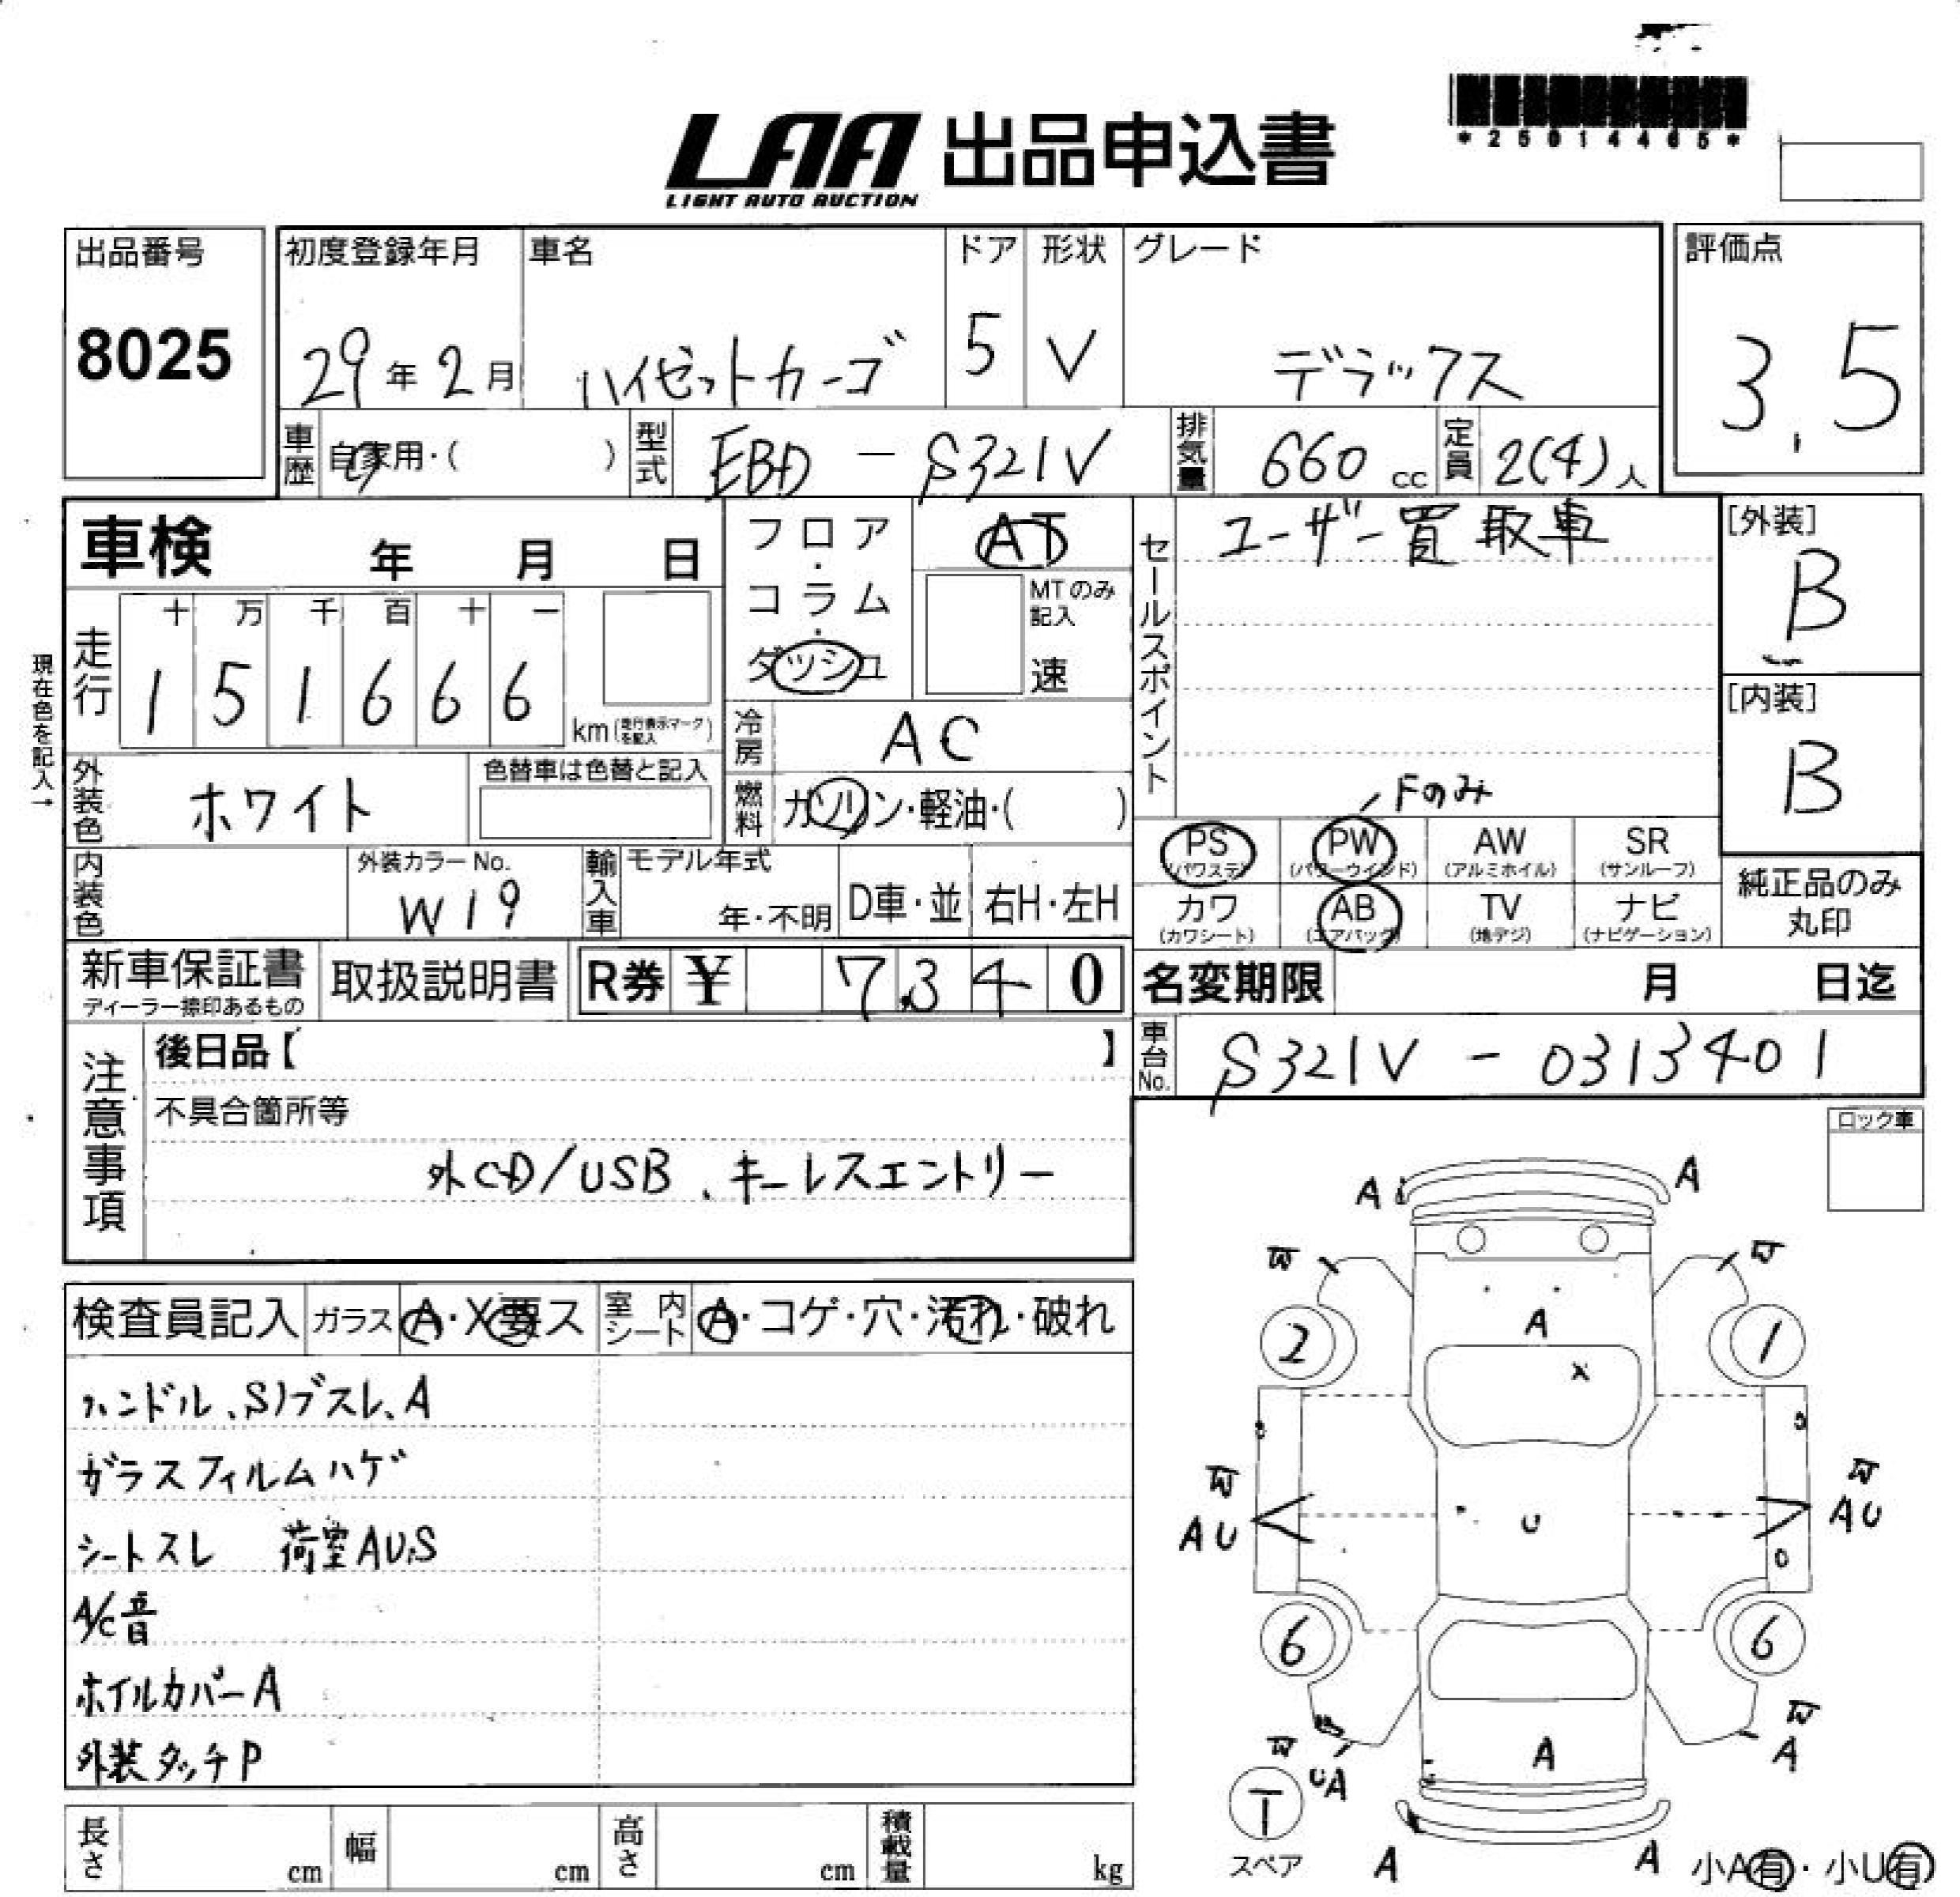 LAA 出品申込書
LIGHT AUTO AUCTION
*25014465*
出品番号
8025
初度登録年月
29年2月
車名
ハイゼットカーゴ
ドア
5
形状
V
グレード
デラックス
評価点
3.5
車歴
自家用・( )
型式
EBD - S321V
排気量
660 cc
定員
2(4)人
車検 年 月 日
フロア・コラム・ダッシュ
AT
MTのみ記入
速
セールスポイント
ユーザー買取車
[外装]
B
[内装]
B
現在色を記入→
走行
十 万 千 百 十 一
1 5 1 6 6 6
km(走行表示マークを記入)
冷房
AC
外装色
ホワイト
色替車は色替と記入
燃料
ガソリン・軽油・( )
Fのみ
PS
(パワステ)
PW
(パワーウインド)
AW
(アルミホイル)
SR
(サンルーフ)
カワ
(カワシート)
AB
(エアバッグ)
TV
(地デジ)
ナビ
(ナビゲーション)
純正品のみ
丸印
内装色
外装カラーNo.
W19
輸入車
モデル年式
年・不明
D車・並
右H・左H
新車保証書
ディーラー捺印あるもの
取扱説明書
R券 ¥ 7,340
名変期限 月 日迄
車台No.
S321V - 0313401
注意事項
後日品【 】
不具合箇所等
外CD/USB、キーレスエントリー
ロック車
検査員記入
ガラス
A・X要ス
室内シート
A・コゲ・穴・汚れ・破れ
ハンドル、S)ブスレ、A
ガラスフィルムハゲ
シートスレ 荷室AU,S
A/C音
ホイルカバーA
外装タッチP
A A
W W
2 A 1
X
W W
AU U AU
6 6
W W
A A
UA
T
スペア
A A
小A有・小U有
長さ cm
幅 cm
高さ cm
積載量 kg